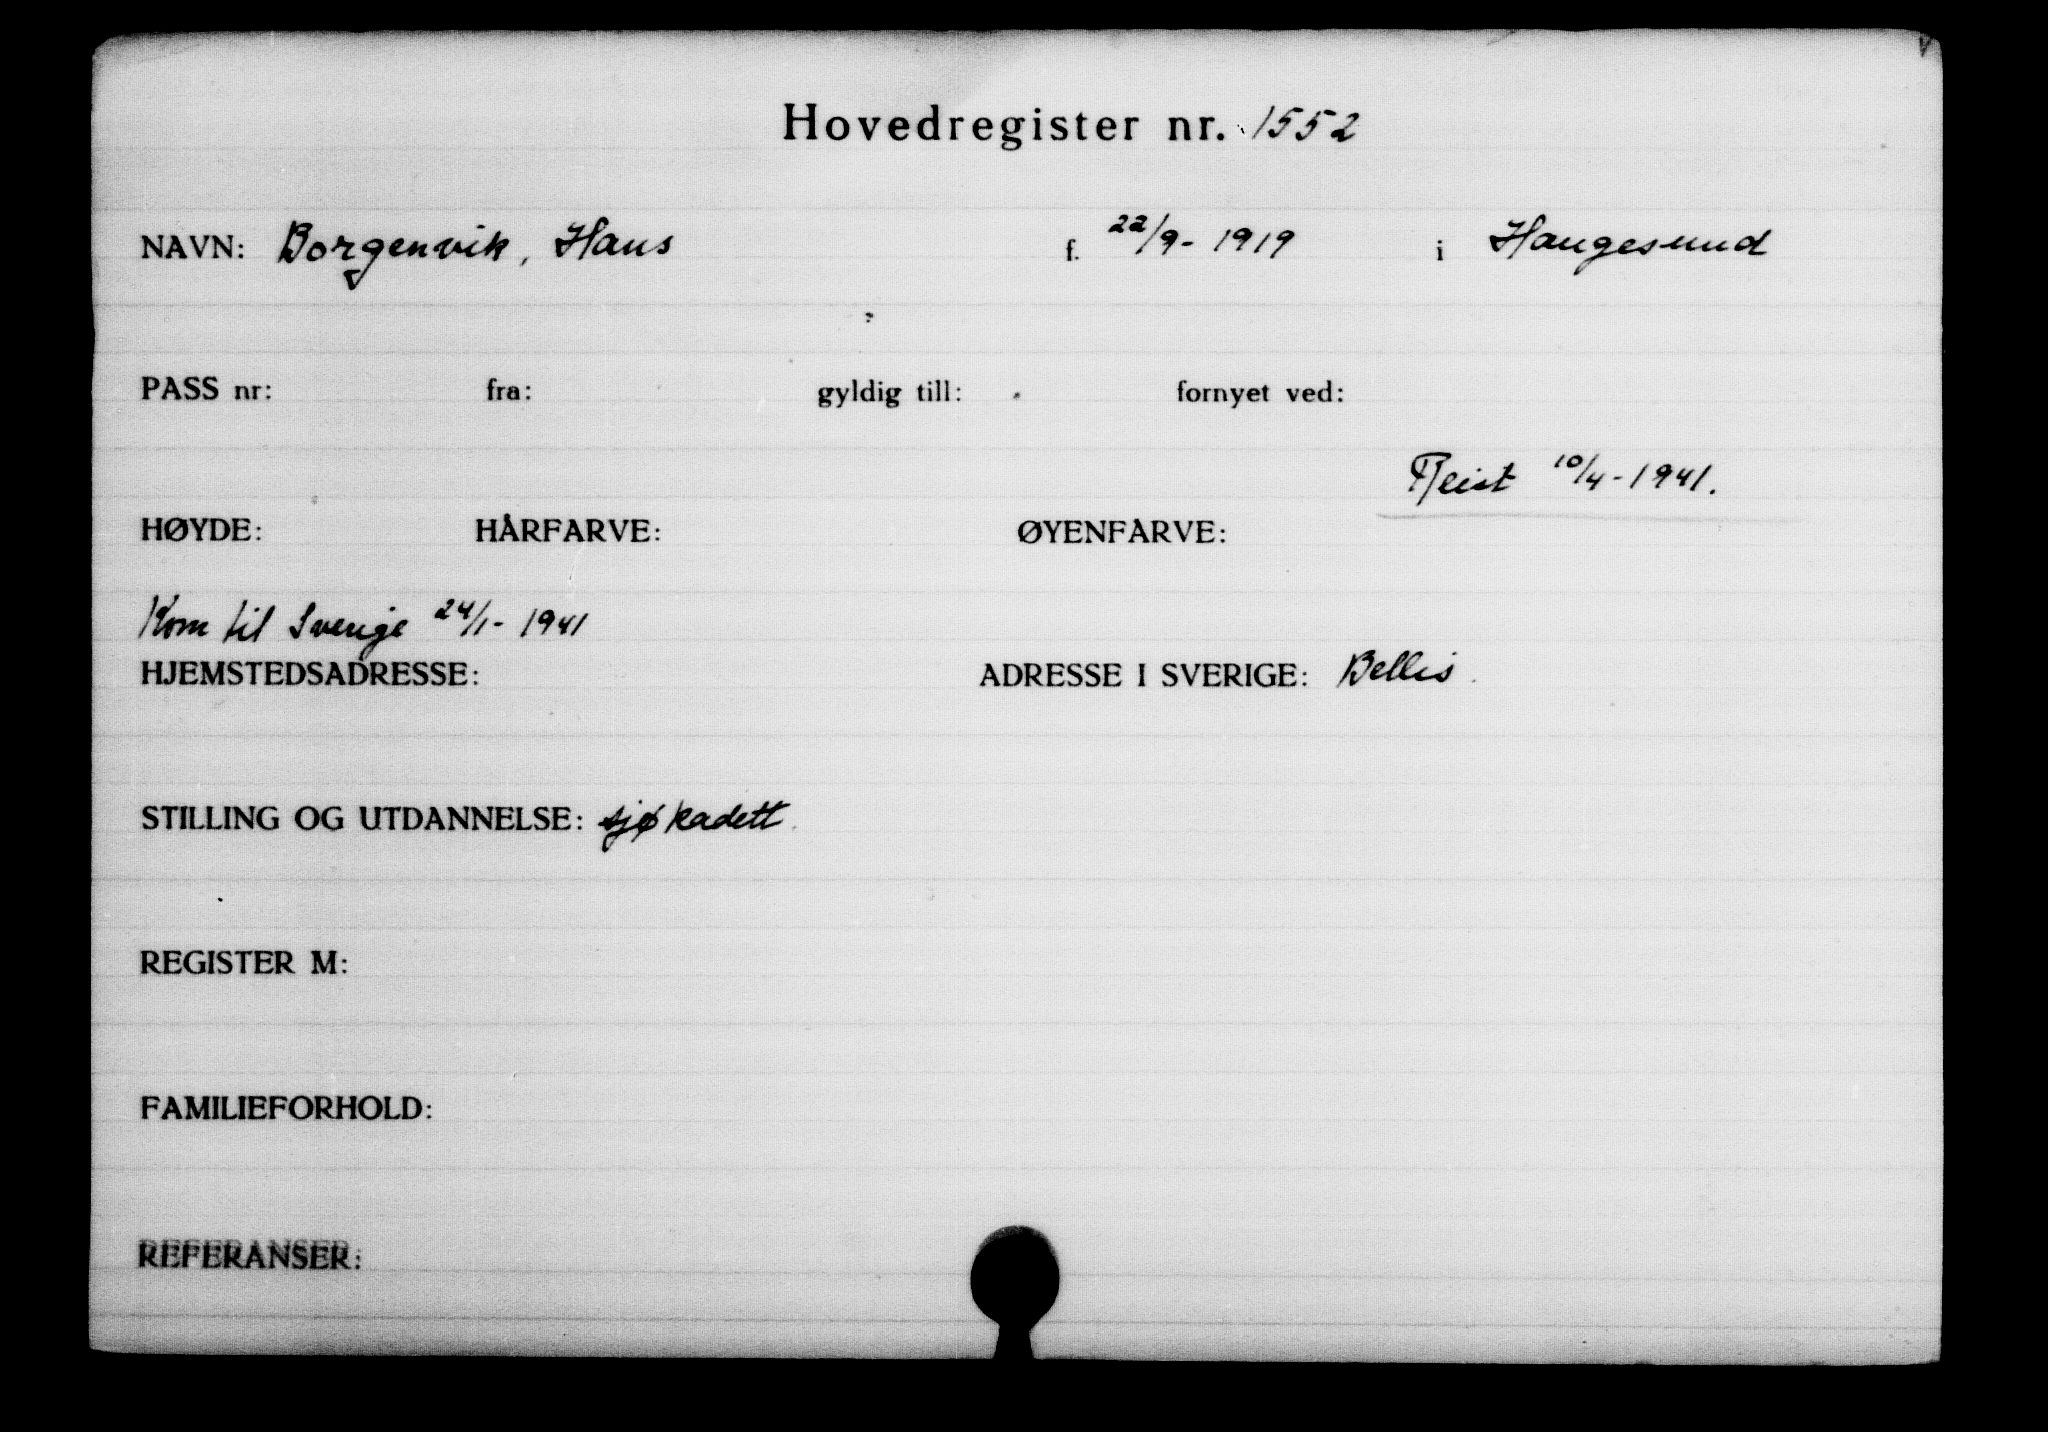 Hovedregister nr. 1552
NAVN: Borgenvik, Hans f. 22/9- 1919 i Haugesund
PASS nr: fra: gyldig till: fornyet ved:
Reist 10/4-1941.
HØYDE: HÅRFARVE: ØYENFARVE:
Kom til Sverige 24/1- 1941
HJEMSTEDSADRESSE: ADRESSE I SVERIGE: Bellis.
STILLING OG UTDANNELSE: sjøkadett.
REGISTER M:
FAMILIEFORHOLD:
REFERANSER: